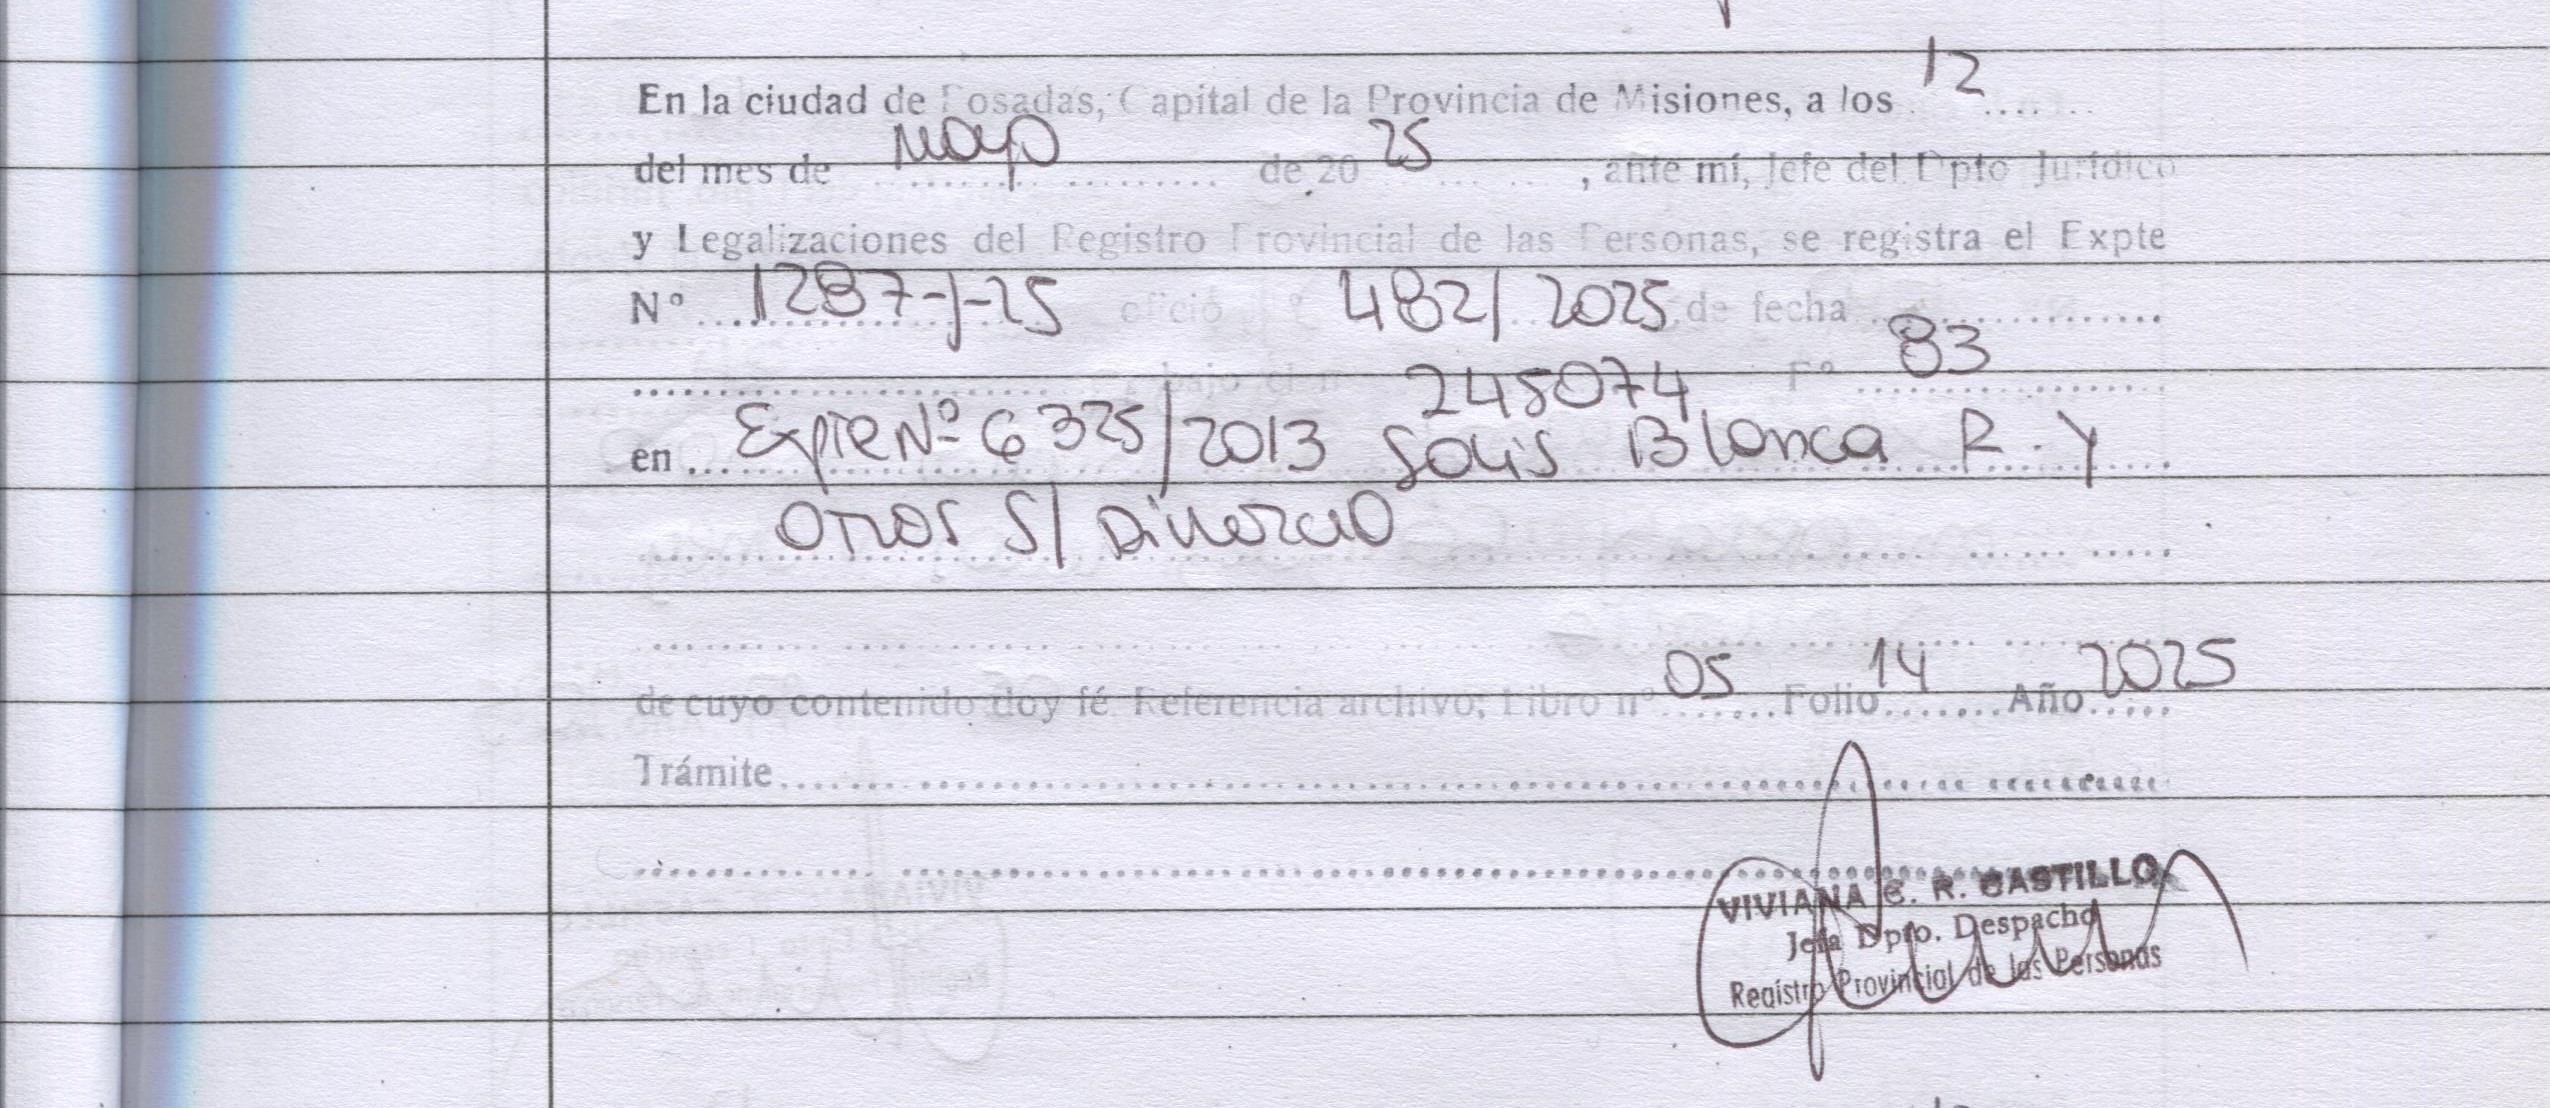 En la ciudad de Posadas, Capital de la Provincia de Misiones, a los 12
del mes de Mayo de 20 25, ante mí, Jefe del Dpto Jurídico
y Legalizaciones del Registro Provincial de las Personas, se registra el Expte
N° 1287-J-25 oficio 482/2025 de fecha
bajo 245074 F° 83
en Expte Nº 6325/2013 Solis Blanca R. y
Otros S/ Divorcio
de cuyo contenido doy fé Referencia archivo; Libro n° 05 Folio 14 Año 2025
Trámite
VIVIANA C. R. CASTILLO
Jefa Dpto. Despacho
Registro Provincial de las Personas